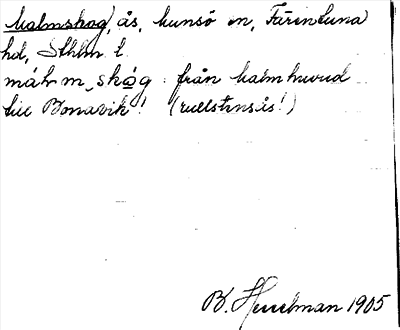 Malmskog, ås, Munsö sn, Färentuna
hd, Sthlm l.
målm_skóg från Malmhuvud
till Bonavik! (rullstensås!)
B. Hesselman 1905